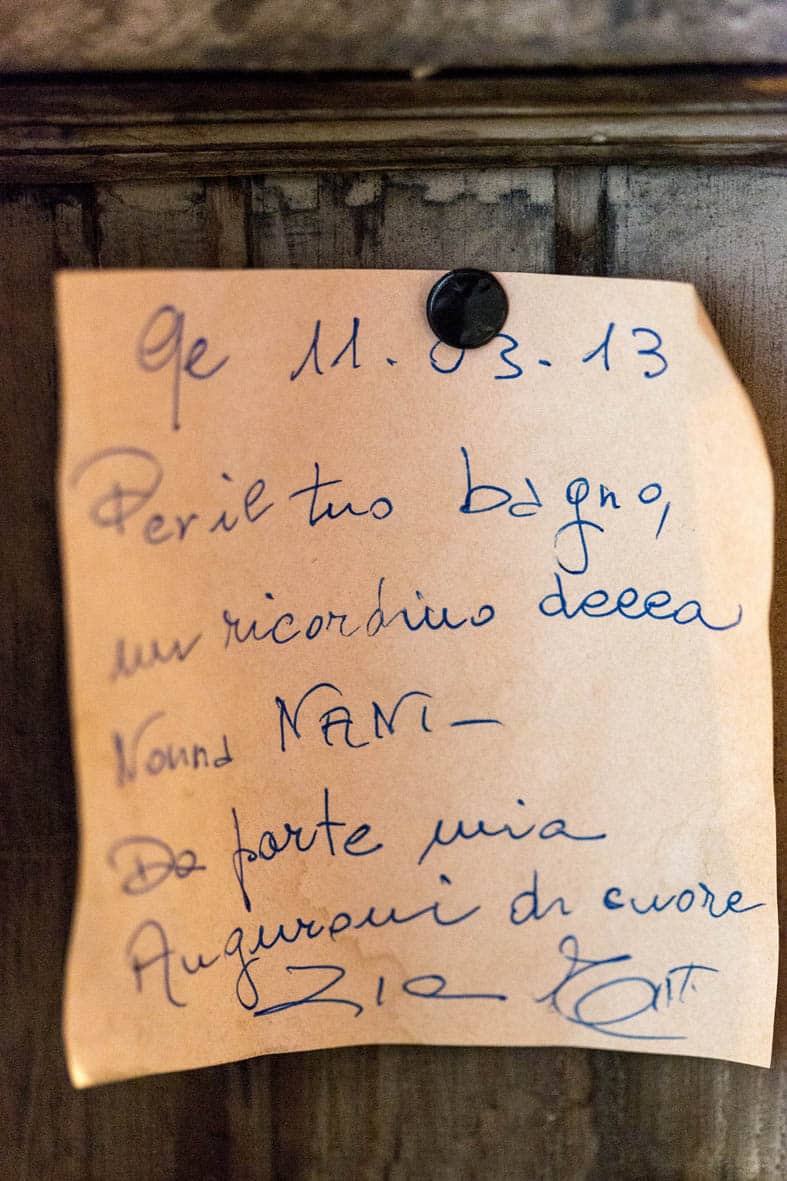 Ge 11.03.13
Per il tuo bagno,
un ricordino della
Nonna NANI -
Da parte mia
Auguroni di cuore
Zia